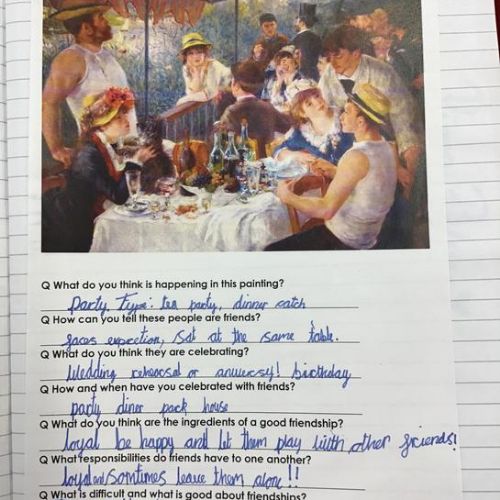 Q What do you think is happening in this painting?
Party, Type: tea party, dinner catch
Q How can you tell these people are friends?
faces expection, sat at the same table.
Q What do you think they are celebrating?
Wedding rehearsal or anuversy! birthday
Q How and when have you celebrated with friends?
party diner park house
Q What do you think are the ingredients of a good friendship?
loyal be happy and let them play with other friends!
Q What responsibilities do friends have to one another?
loyal and somtimes leave them alone!!
Q What is difficult and what is good about friendships?